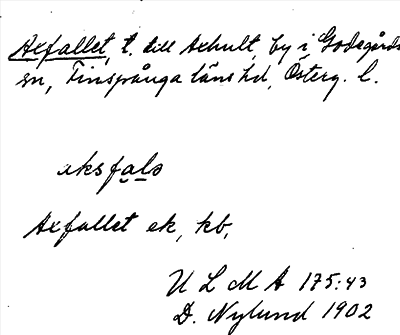 Axfallet, t. till Axhult, by i Godegårds
sn, Finspånga läns hd, Österg. l.
aksfals
Axfallet ek, kb,
U L M A 175:43
D. Nylund 1902